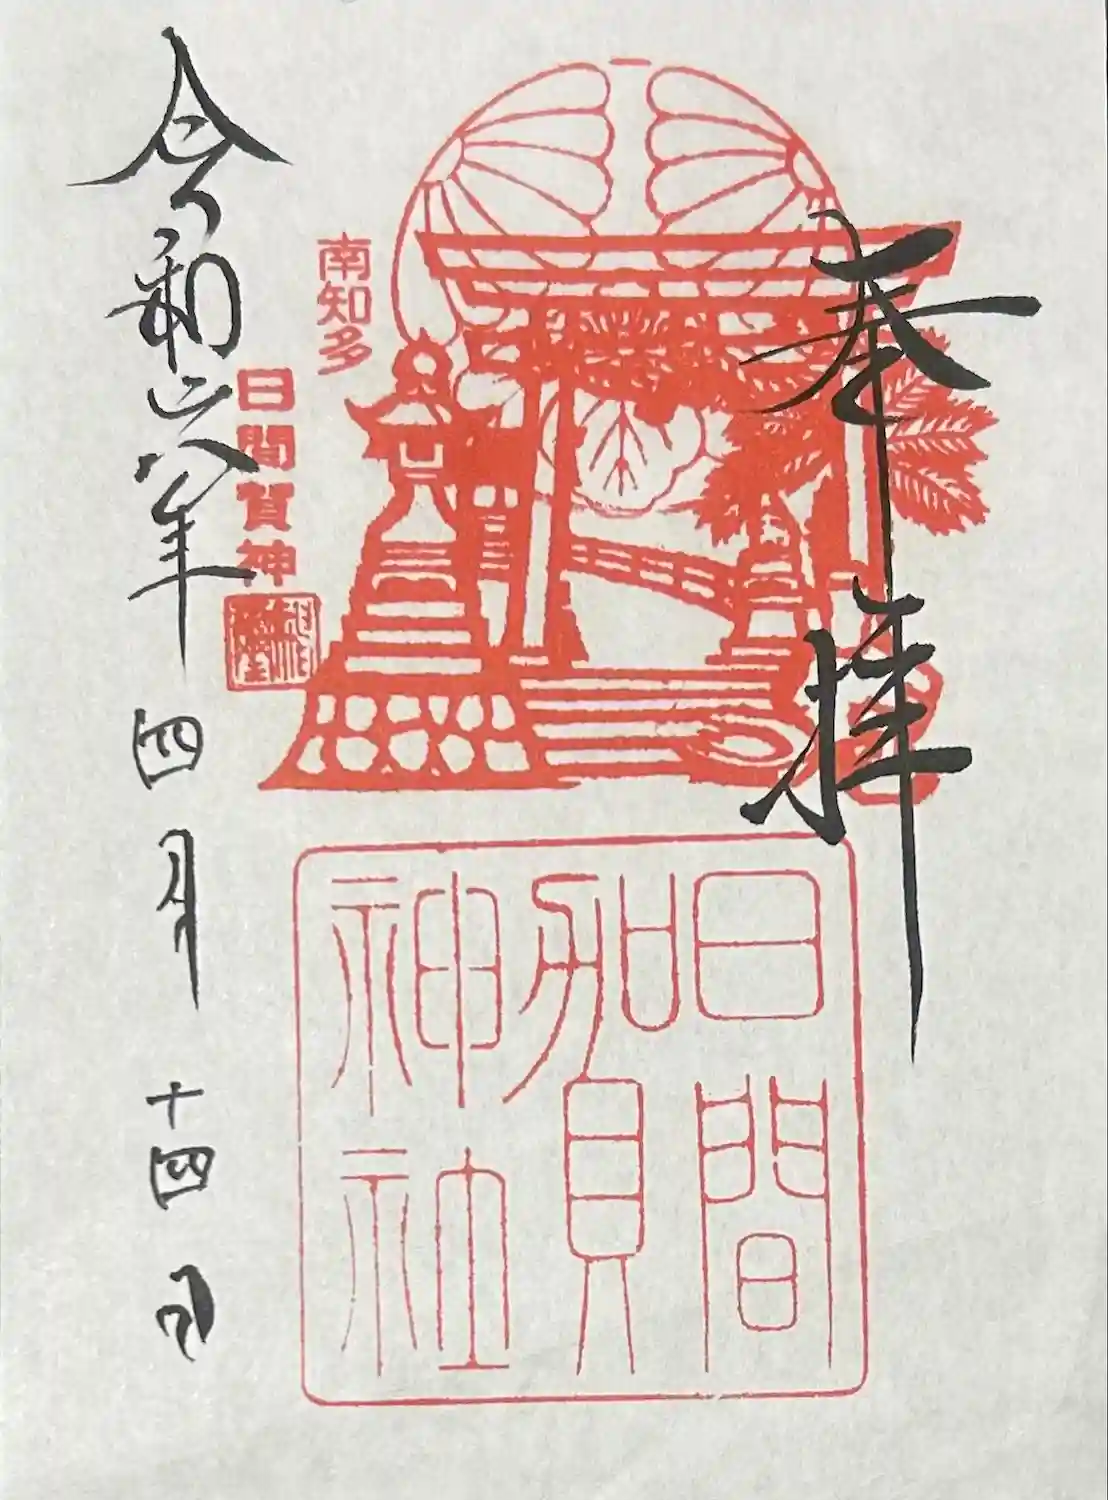 奉拝
日間賀神社
南知多
日間賀神社
令和六年四月十四日